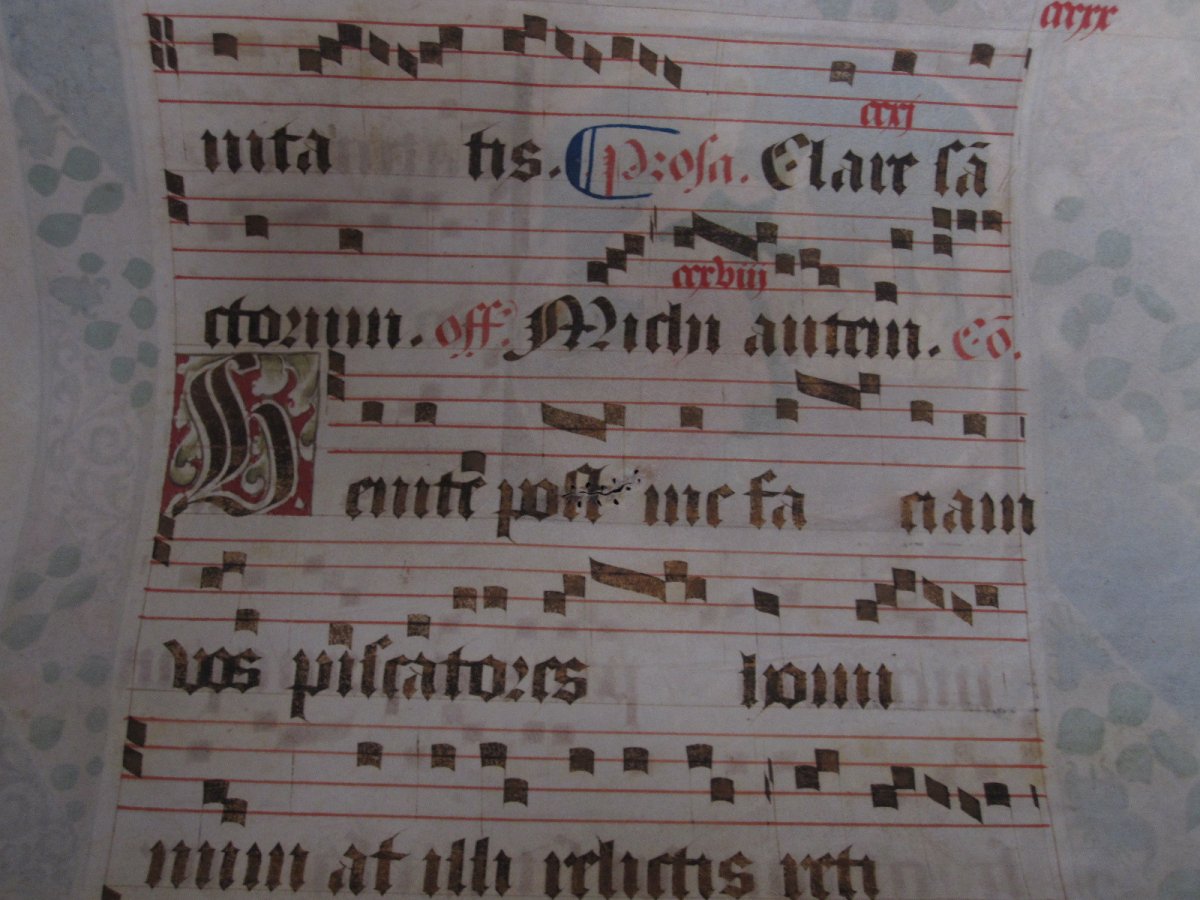 cxxx
nita tis. Prosa. Clare sā cxxj
ctorum. off. Michi autem. Cō. cxxviij
Venite post me fa ciam
vos piscatores homi
num at illi relictis reti